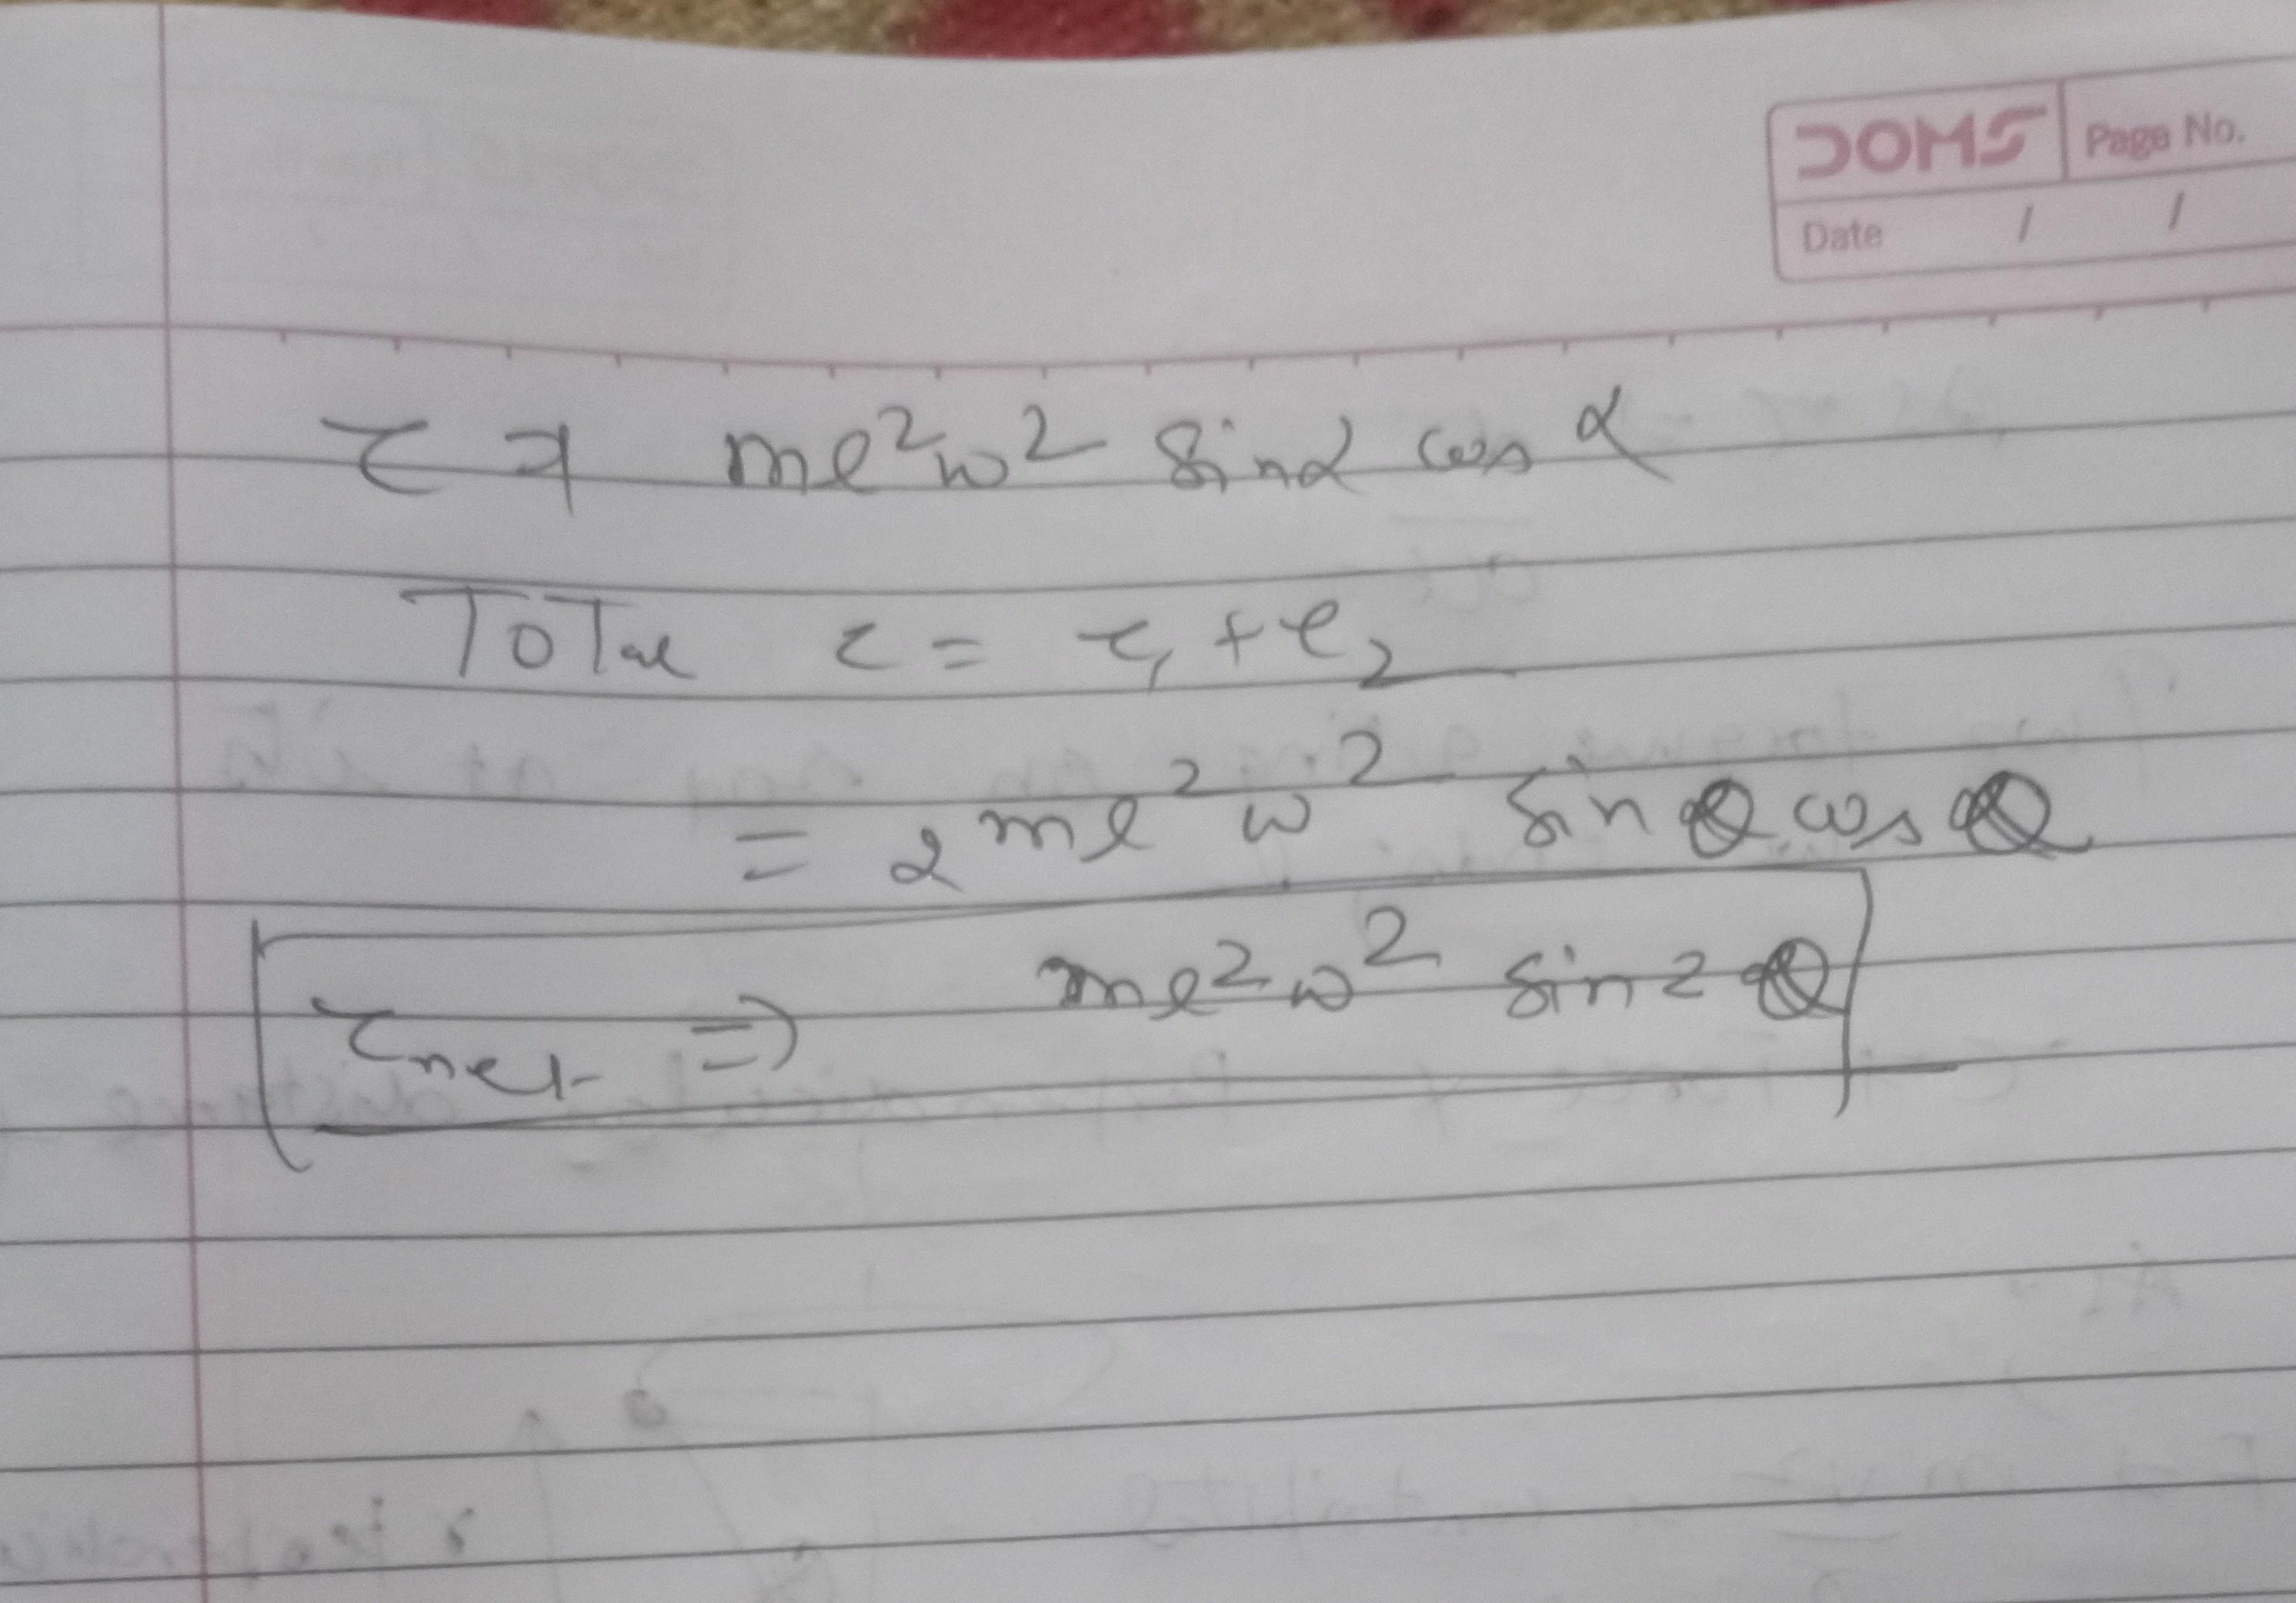 DOMS Page No.
Date / /
τ ⇒ ml²ω² sinα cos α
ToTal τ = τ₁ + τ₂
= 2 ml²ω² sin θ cos θ
τnet ⇒ ml²ω² sin2θ